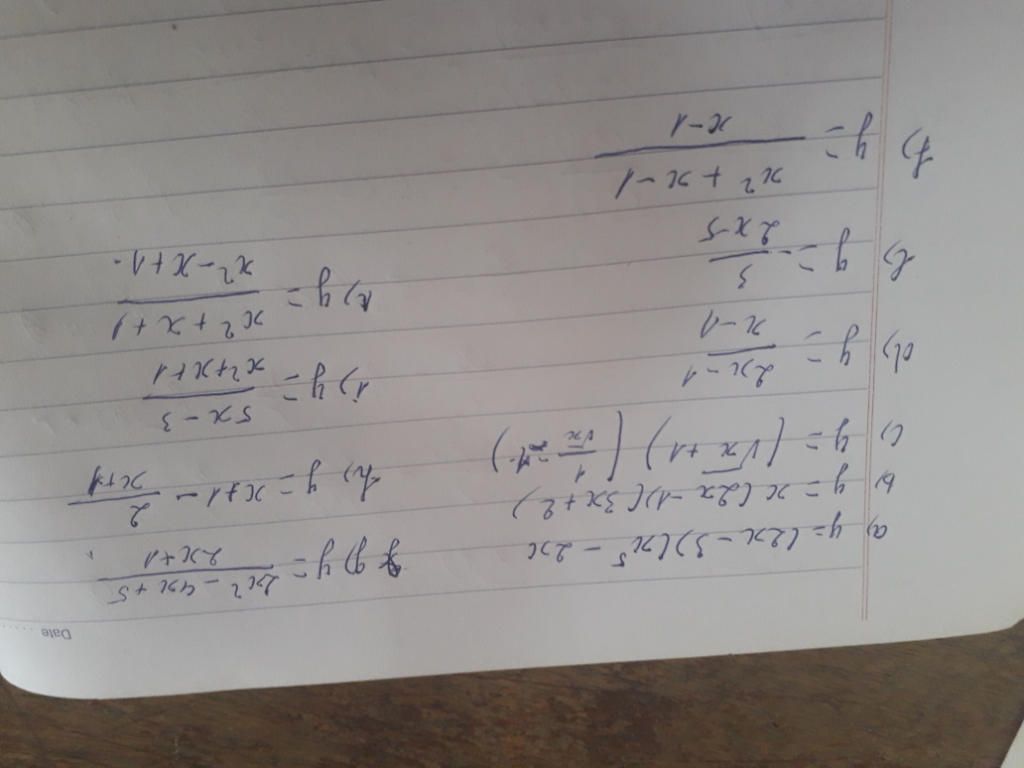 Date
a) y=(2x-3)(x⁵-2x
b) y=x(2x-1)(3x+2)
c) y=(√x+1)(1/√x-1)
d) y=2x-1/x-1
e) y=-3/2x-5
f) y=x²+x-1/x-1
g) y=2x²-4x+5/2x+1
h) y=x+1-2/x+1
i) y=5x-3/x²+x+1
k) y=x²+x+1/x²-x+1.